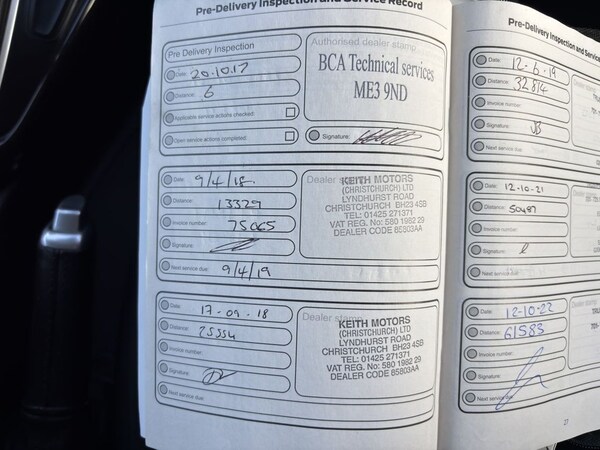 Pre-Delivery Inspection and Service Record
Pre Delivery Inspection
Date: 20.10.17
Distance: 6
Applicable service actions checked:
Open service actions completed:
Authorised dealer stamp
BCA Technical services
ME3 9ND
Signature:
Date: 9/4/18
Distance: 13329
Invoice number: 75065
Signature:
Next service due: 9/4/19
Dealer stamp
KEITH MOTORS
(CHRISTCHURCH) LTD
LYNDHURST ROAD
CHRISTCHURCH BH23 4SB
TEL: 01425 271371
VAT REG. No: 580 1982 29
DEALER CODE 85803AA
Date: 17-09-18
Distance: 25554
Invoice number:
Signature:
Next service due:
Dealer stamp
KEITH MOTORS
(CHRISTCHURCH) LTD
LYNDHURST ROAD
CHRISTCHURCH BH23 4SB
TEL: 01425 271371
VAT REG. No: 580 1982 29
DEALER CODE 85803AA
Pre-Delivery Inspection and Service
Date: 12-6-19
Distance: 32814
Invoice number:
Signature:
Next service due:
Date: 12-10-21
Distance: 50487
Invoice number:
Signature:
Next service due:
Date: 12-10-22
Distance: 61583
Invoice number:
Signature:
Next service due:
27